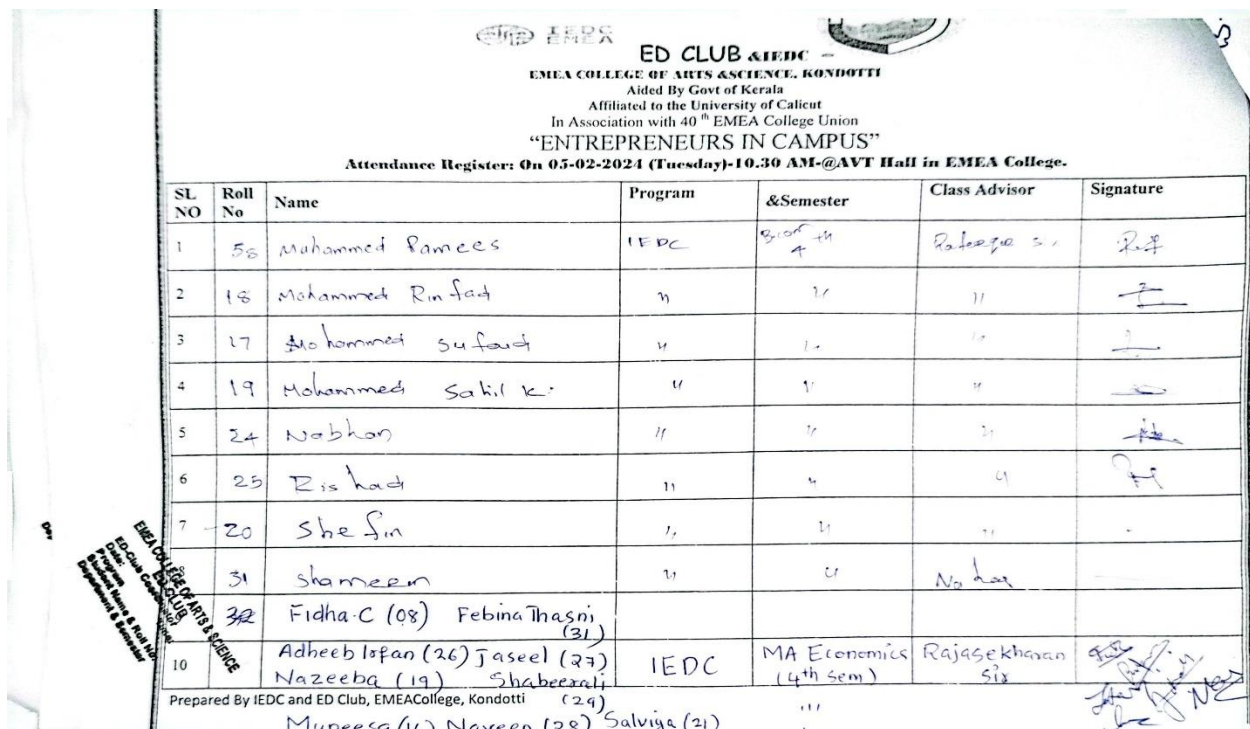 IEDC
EMEA
ED CLUB &IEDC -
EMEA COLLEGE OF ARTS &SCIENCE, KONDOTTI
Aided By Govt of Kerala
Affiliated to the University of Calicut
In Association with 40 th EMEA College Union
“ENTREPRENEURS IN CAMPUS”
Attendance Register: On 05-02-2024 (Tuesday)-10.30 AM-@AVT Hall in EMEA College.
SL NO Roll No Name Program &Semester Class Advisor Signature
1 Mohammed Ramees IEDC
2 18 Mohammed Rinfad " " "
3 17 Mohammed Sufaid " " "
4 19 Mohammed Sahil K. " " "
5 24 Nabhan " " "
6 25 Rishad " " "
7 20 Shefin " " "
31 Shameem " "
Fidha.C (08) Febina Thasni (31)
10 Adheeb Irfan (26) Jaseel (27) IEDC MA Economics Rajasekharan
Nazeeba (19) Shabeerali (4th Sem) Sir
Prepared By IEDC and ED Club, EMEACollege, Kondotti (29)
Muneesa Naveen (28) Salviya (21)
EMEA COLLEGE OF ARTS & SCIENCE
ED-CLUB
Date:
Program
Student Name & Roll No
Department & Semester